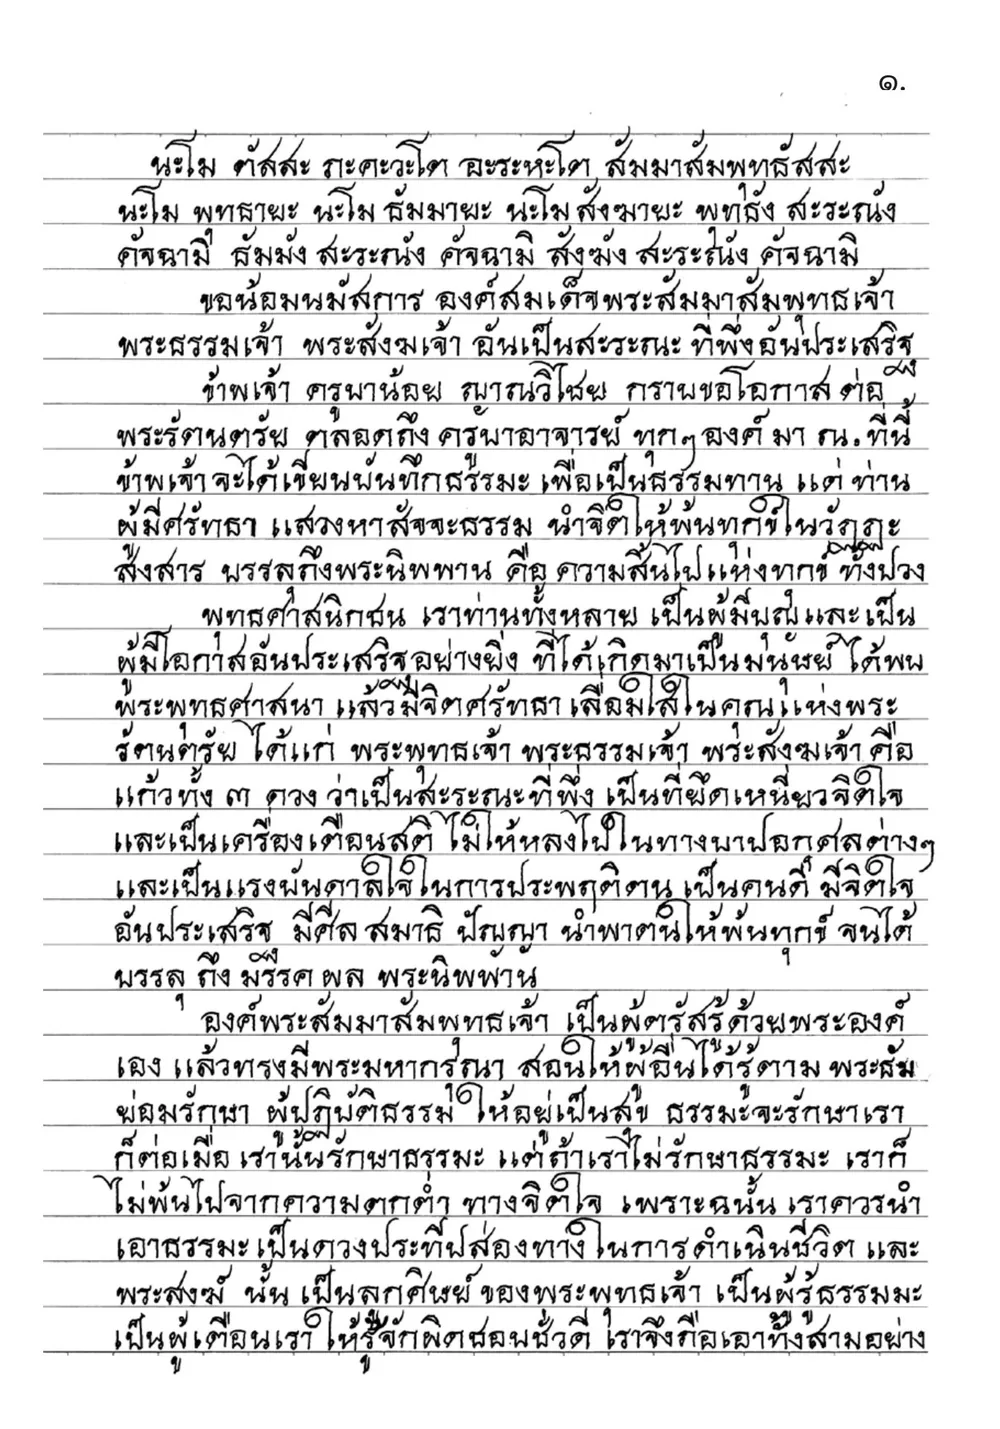 ๑.
นะโม ตัสสะ ภะคะวะโต อะระหะโต สัมมาสัมพุทธัสสะ
นะโม พุทธายะ นะโม ธัมมายะ นะโม สังฆายะ พุทธัง สะระณัง
คัจฉามิ ธัมมัง สะระณัง คัจฉามิ สังฆัง สะระณัง คัจฉามิ
ขอน้อมนมัสการ องค์สมเด็จพระสัมมาสัมพุทธเจ้า
พระธรรมเจ้า พระสังฆเจ้า อันเป็นสะระณะ ที่พึ่งอันประเสริฐ
ข้าพเจ้า ครูบาน้อย ญาณวิไชย กราบขอโอกาส ต่อ
พระรัตนตรัย ตลอดถึง ครูบาอาจารย์ ทุกๆ องค์ มา ณ. ที่นี้
ข้าพเจ้าจะได้เขียนบันทึกธรรมะ เพื่อเป็นธรรมทาน แต่ ท่าน
ผู้มีศรัทธา แสวงหาสัจจะธรรม นำจิตให้พ้นทุกข์ในวัฏฏะ
สังสาร บรรลุถึงพระนิพพาน คือ ความสิ้นไปแห่งทุกข์ ทั้งปวง
พุทธศาสนิกชน เราท่านทั้งหลาย เป็นผู้มีบุญและเป็น
ผู้มีโอกาสอันประเสริฐอย่างยิ่ง ที่ได้เกิดมาเป็นมนุษย์ ได้พบ
พระพุทธศาสนา แล้วมีจิตศรัทธา เลื่อมใสในคุณแห่งพระ
รัตนตรัย ได้แก่ พระพุทธเจ้า พระธรรมเจ้า พระสังฆเจ้า คือ
แก้วทั้ง ๓ ดวง ว่าเป็นสะระณะที่พึ่ง เป็นที่ยึดเหนี่ยวจิตใจ
และเป็นเครื่องเตือนสติ ไม่ให้หลงไปในทางบาปอกุศลต่างๆ
และเป็นแรงบันดาลใจในการประพฤติตน เป็นคนดี มีจิตใจ
อันประเสริฐ มีศีล สมาธิ ปัญญา นำพาตนให้พ้นทุกข์ จนได้
บรรลุ ถึง มรรค ผล พระนิพพาน
องค์พระสัมมาสัมพุทธเจ้า เป็นผู้ตรัสรู้ด้วยพระองค์
เอง แล้วทรงมีพระมหากรุณา สอนให้ผู้อื่นได้รู้ตาม พระธัม
ย่อมรักษา ผู้ปฏิบัติธรรม ให้อยู่เป็นสุข ธรรมะจะรักษาเรา
ก็ต่อเมื่อ เรานั้นรักษาธรรมะ แต่ถ้าเราไม่รักษาธรรมะ เราก็
ไม่พ้นไปจากความตกต่ำ ทางจิตใจ เพราะฉนั้น เราควรนำ
เอาธรรมะ เป็นดวงประทีปส่องทางในการดำเนินชีวิต และ
พระสงฆ์ นั้น เป็นลูกศิษย์ ของพระพุทธเจ้า เป็นผู้รู้ธรรมมะ
เป็นผู้เตือนเรา ให้รู้จักผิดชอบชั่วดี เราจึงถือเอาทั้งสามอย่าง